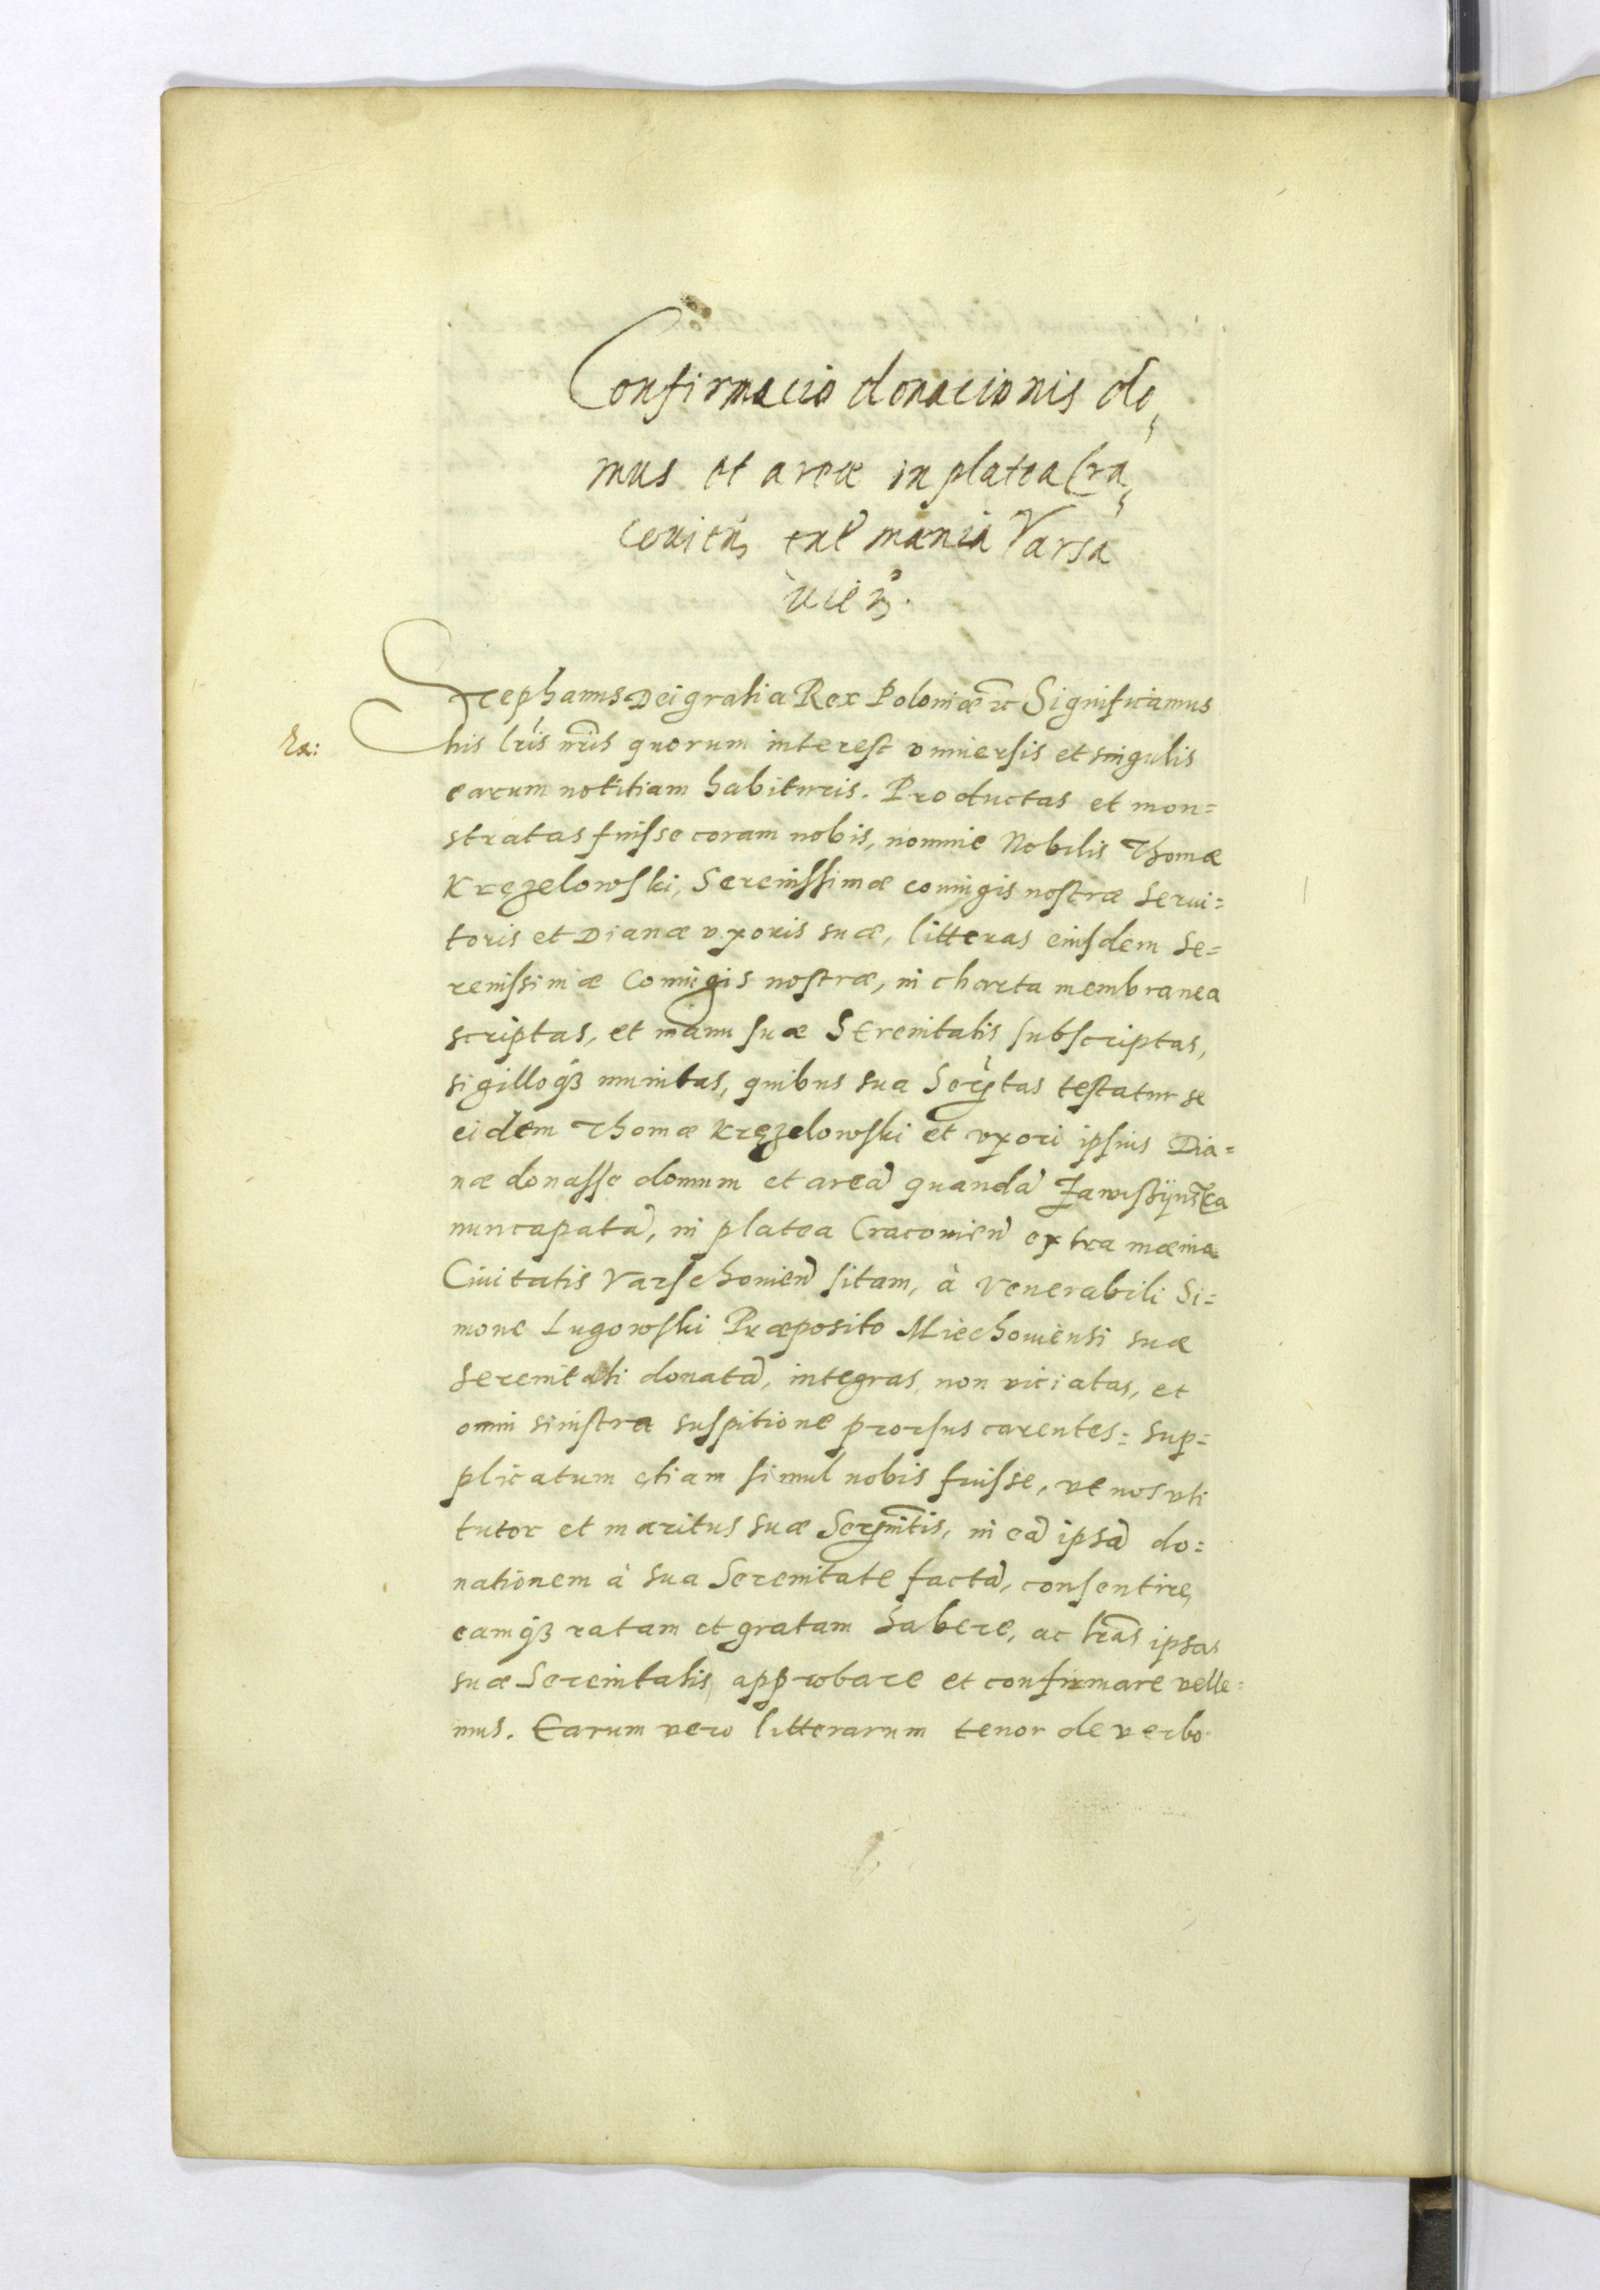 Confirmacio donacionis do,
mus et areæ in platea Cra,
coviēn, ext̃ mænia Varsa
vien̄.
Stephanus Dei gratia Rex Poloniæ etc Significamus
Ra:
his lr̃is nr̃is quorum interest vniuersis et singulis
earum notitiam habituris. Productas et mon=
stratas fuisse coram nobis, nomine Nobilis Thomæ
Kręzelowski, Serenissimæ coniugis nostræ Serui=
toris et Dianæ vxoris suæ, litteras eiusdem Se=
renissimæ Coniugis nostræ, in charta membranea
scriptas, et manu suæ Serenitatis subscriptas,
sigilloq3 munitas, quibus sua Ser̃tas testatur se
eidem Thomæ Kręzelowski et vxori ipsius Dia=
næ donasse domum et areā quandā
nuncapatā, in platea Cracouien̄ extra mænia
Ciuitatis Varschouien̄ sitam, à Venerabili Si=
mone Lugowski Præposito Miechouiensi suæ
Serenitati donatā, integras, non viciatas, et
omni sinistra suspitione prorsus carentes: Sup=
plicatum etiam simul nobis fuisse, vt nos vti
tutor et maritus suæ Serenitis, in eā ipsā do=
nationem à sua Serenitate factā, consentire,
eamq3 ratam et gratam habere, ac lr̃as ipsas
suæ Serenitatis, approbare et confirmare velle=
mus. Earum vero litterarum tenor de verbo